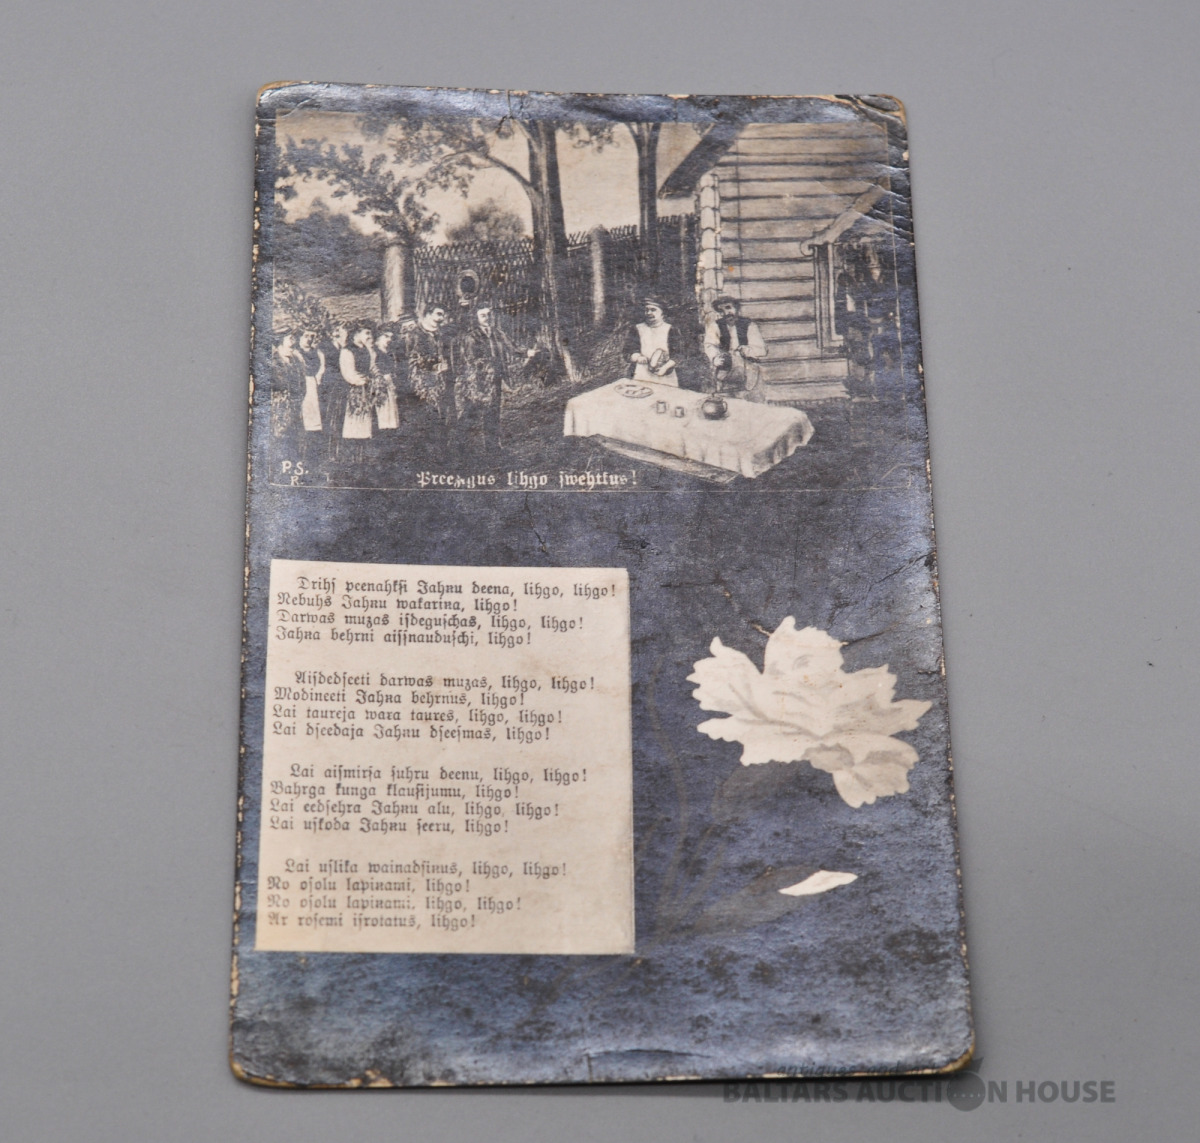 P.S.
R.
Preezigus lihgo swehtkus!
Drihs peenahksi Jahnu deena, lihgo, lihgo!
Nebuhs Jahnu wakarina, lihgo!
Darwas muzas isdeguschas, lihgo, lihgo!
Jahna behrni aissnauduschi, lihgo!
Aisdedseeti darwas muzas, lihgo, lihgo!
Modineeti Jahna behrnus, lihgo!
Lai taureja wara taures, lihgo, lihgo!
Lai dseedaja Jahnu dseesmas, lihgo!
Lai aismirsa suhru deenu, lihgo, lihgo!
Bahrga kunga klausijumu, lihgo!
Lai eedsehra Jahnu alu, lihgo, lihgo!
Lai uskoda Jahnu seeru, lihgo!
Lai uslika wainadsinus, lihgo, lihgo!
No osolu lapinami, lihgo!
No osolu lapinami, lihgo, lihgo!
Ar rosemi isrotatus, lihgo!
BALTARS AUCTION HOUSE